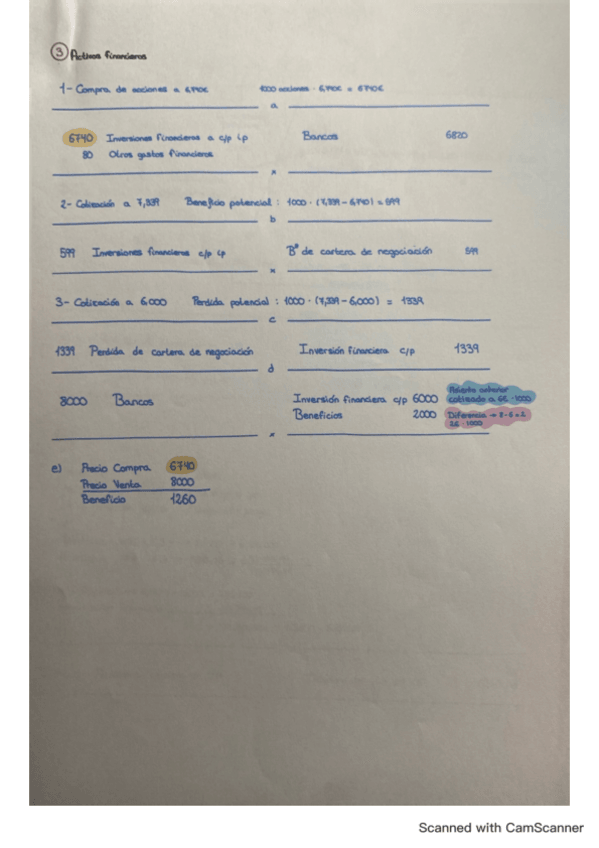 ③ Activos financieros
1- Compra de acciones a 6,740€ 1000 acciones · 6,740€ = 6740€
a
6740 Inversiones financieras a c/p ip Bancos 6820
80 Otros gastos financieros
x
2- Cotización a 7,339 Beneficio potencial : 1000 · (7,339 - 6,740) = 599
b
599 Inversiones financieras c/p ip Bº de cartera de negociación 599
x
3- Cotización a 6.000 Perdida potencial : 1000 · (7,339 - 6,000) = 1339
c
1339 Perdida de cartera de negociación Inversión financiera c/p 1339
d
8000 Bancos Inversión financiera c/p 6000 Asiento anterior cotizado a 6€ · 1000
Beneficios 2000 Diferencia → 8-6 = 2
2€ · 1000
x
e) Precio Compra 6740
Precio Venta 8000
Beneficio 1260
Scanned with CamScanner